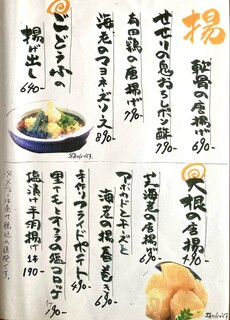 揚
軟骨の唐揚げ 690-
せせりの鬼おろしポン酢 790-
有田鶏の唐揚げ 790-
海老のマヨネーズソース 890-
ごどうふの揚げ出し 690-
大根の唐揚 490-
芝海老の唐揚 690-
アボカドとチーズと海老の揚春巻き 690-
手作りフライドポテト 490-
里イモとオクラの塩コロッケ 190-
塩漬け手羽揚げ 1本 190-